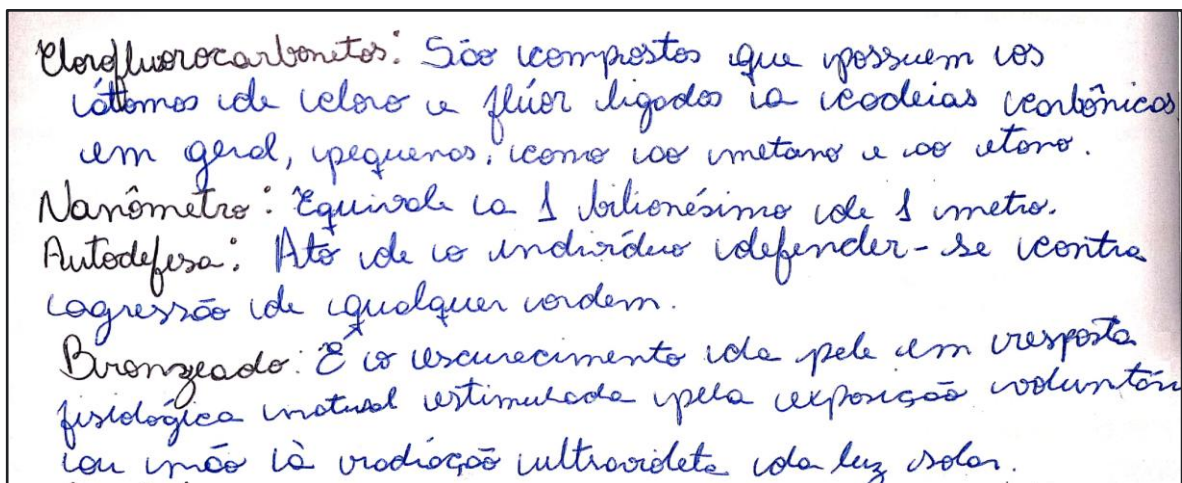 Clorofluorocarbonetos: São compostos que possuem os
átomos de cloro e flúor ligados a cadeias carbônicas
em geral, pequenas, como o metano e o etano.
Nanômetro: Equivale a 1 bilionésimo de 1 metro.
Autodefesa: Ato de o indivíduo defender-se contra
agressão de qualquer ordem.
Bronzeado: É o escurecimento da pele em resposta
fisiológica natural estimulada pela exposição voluntári
ou não à radiação ultravioleta da luz solar.